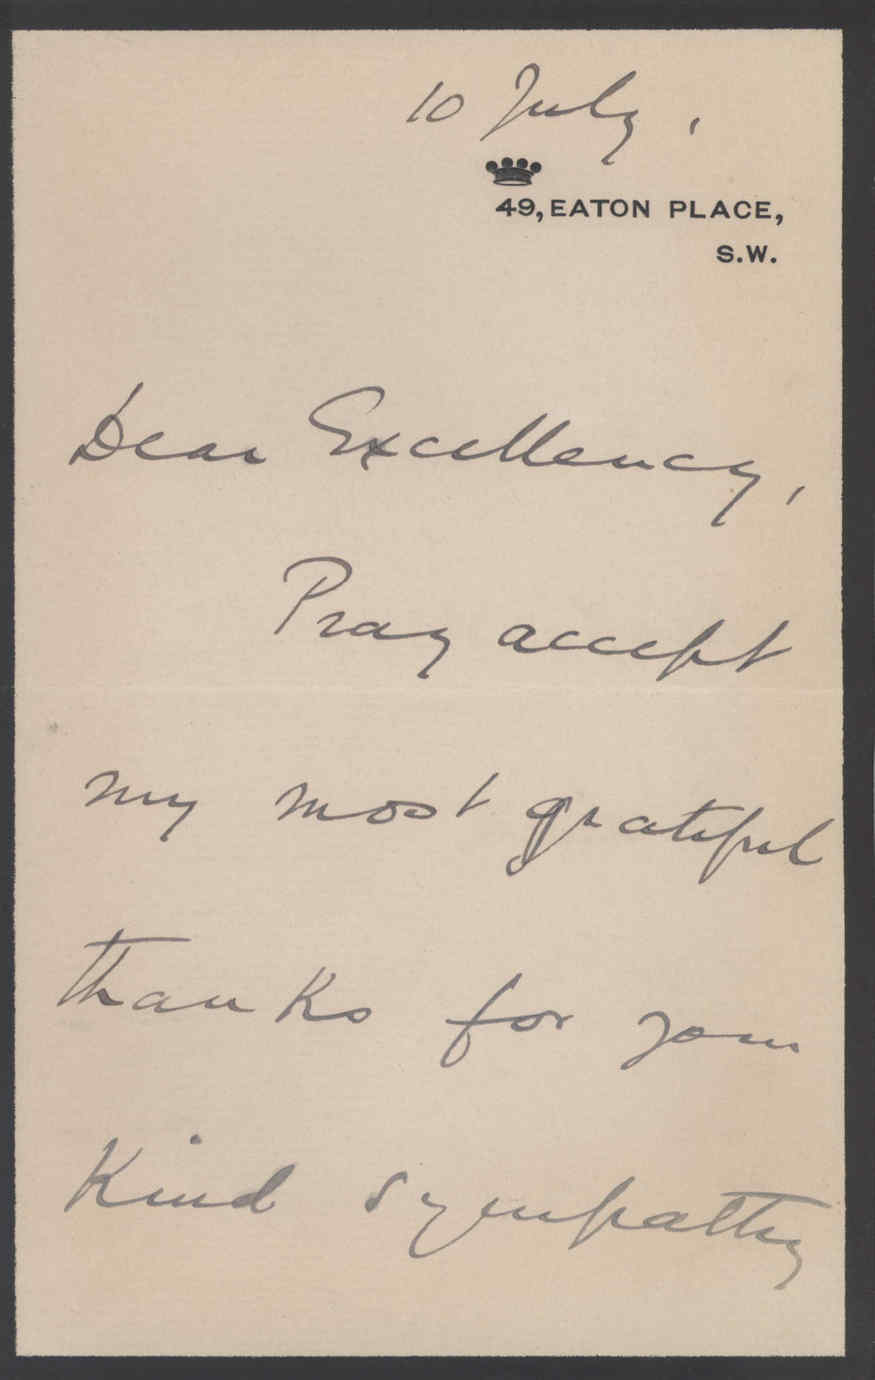 10 July,
49, EATON PLACE,
S.W.
Dear Excellency,
Pray accept
my most grateful
thanks for your
Kind sympathy